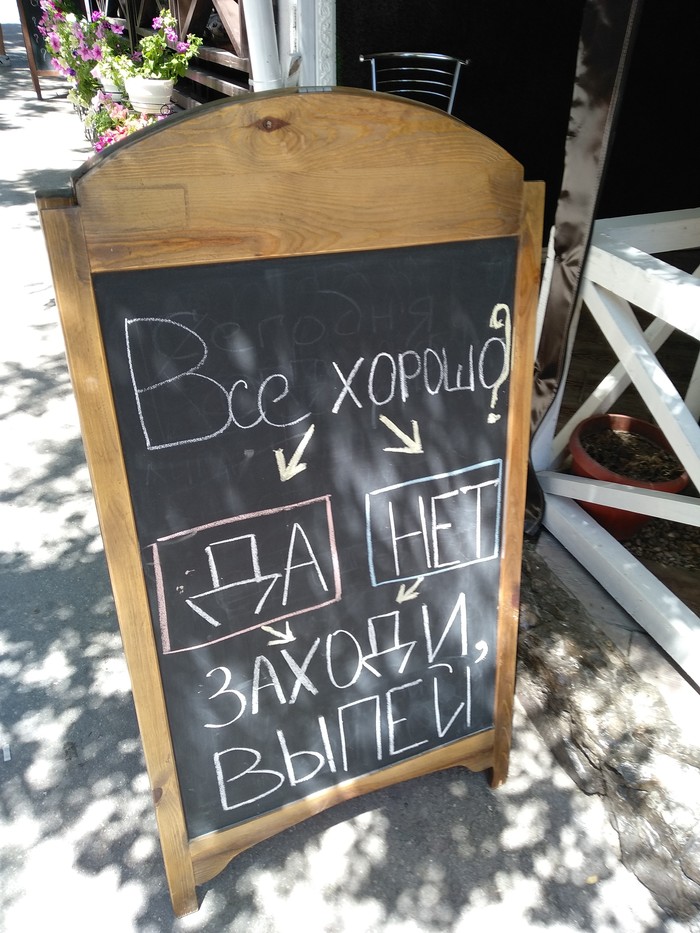 Все хорошо?
ДА НЕТ
ЗАХОДИ,
ВЫПЕЙ